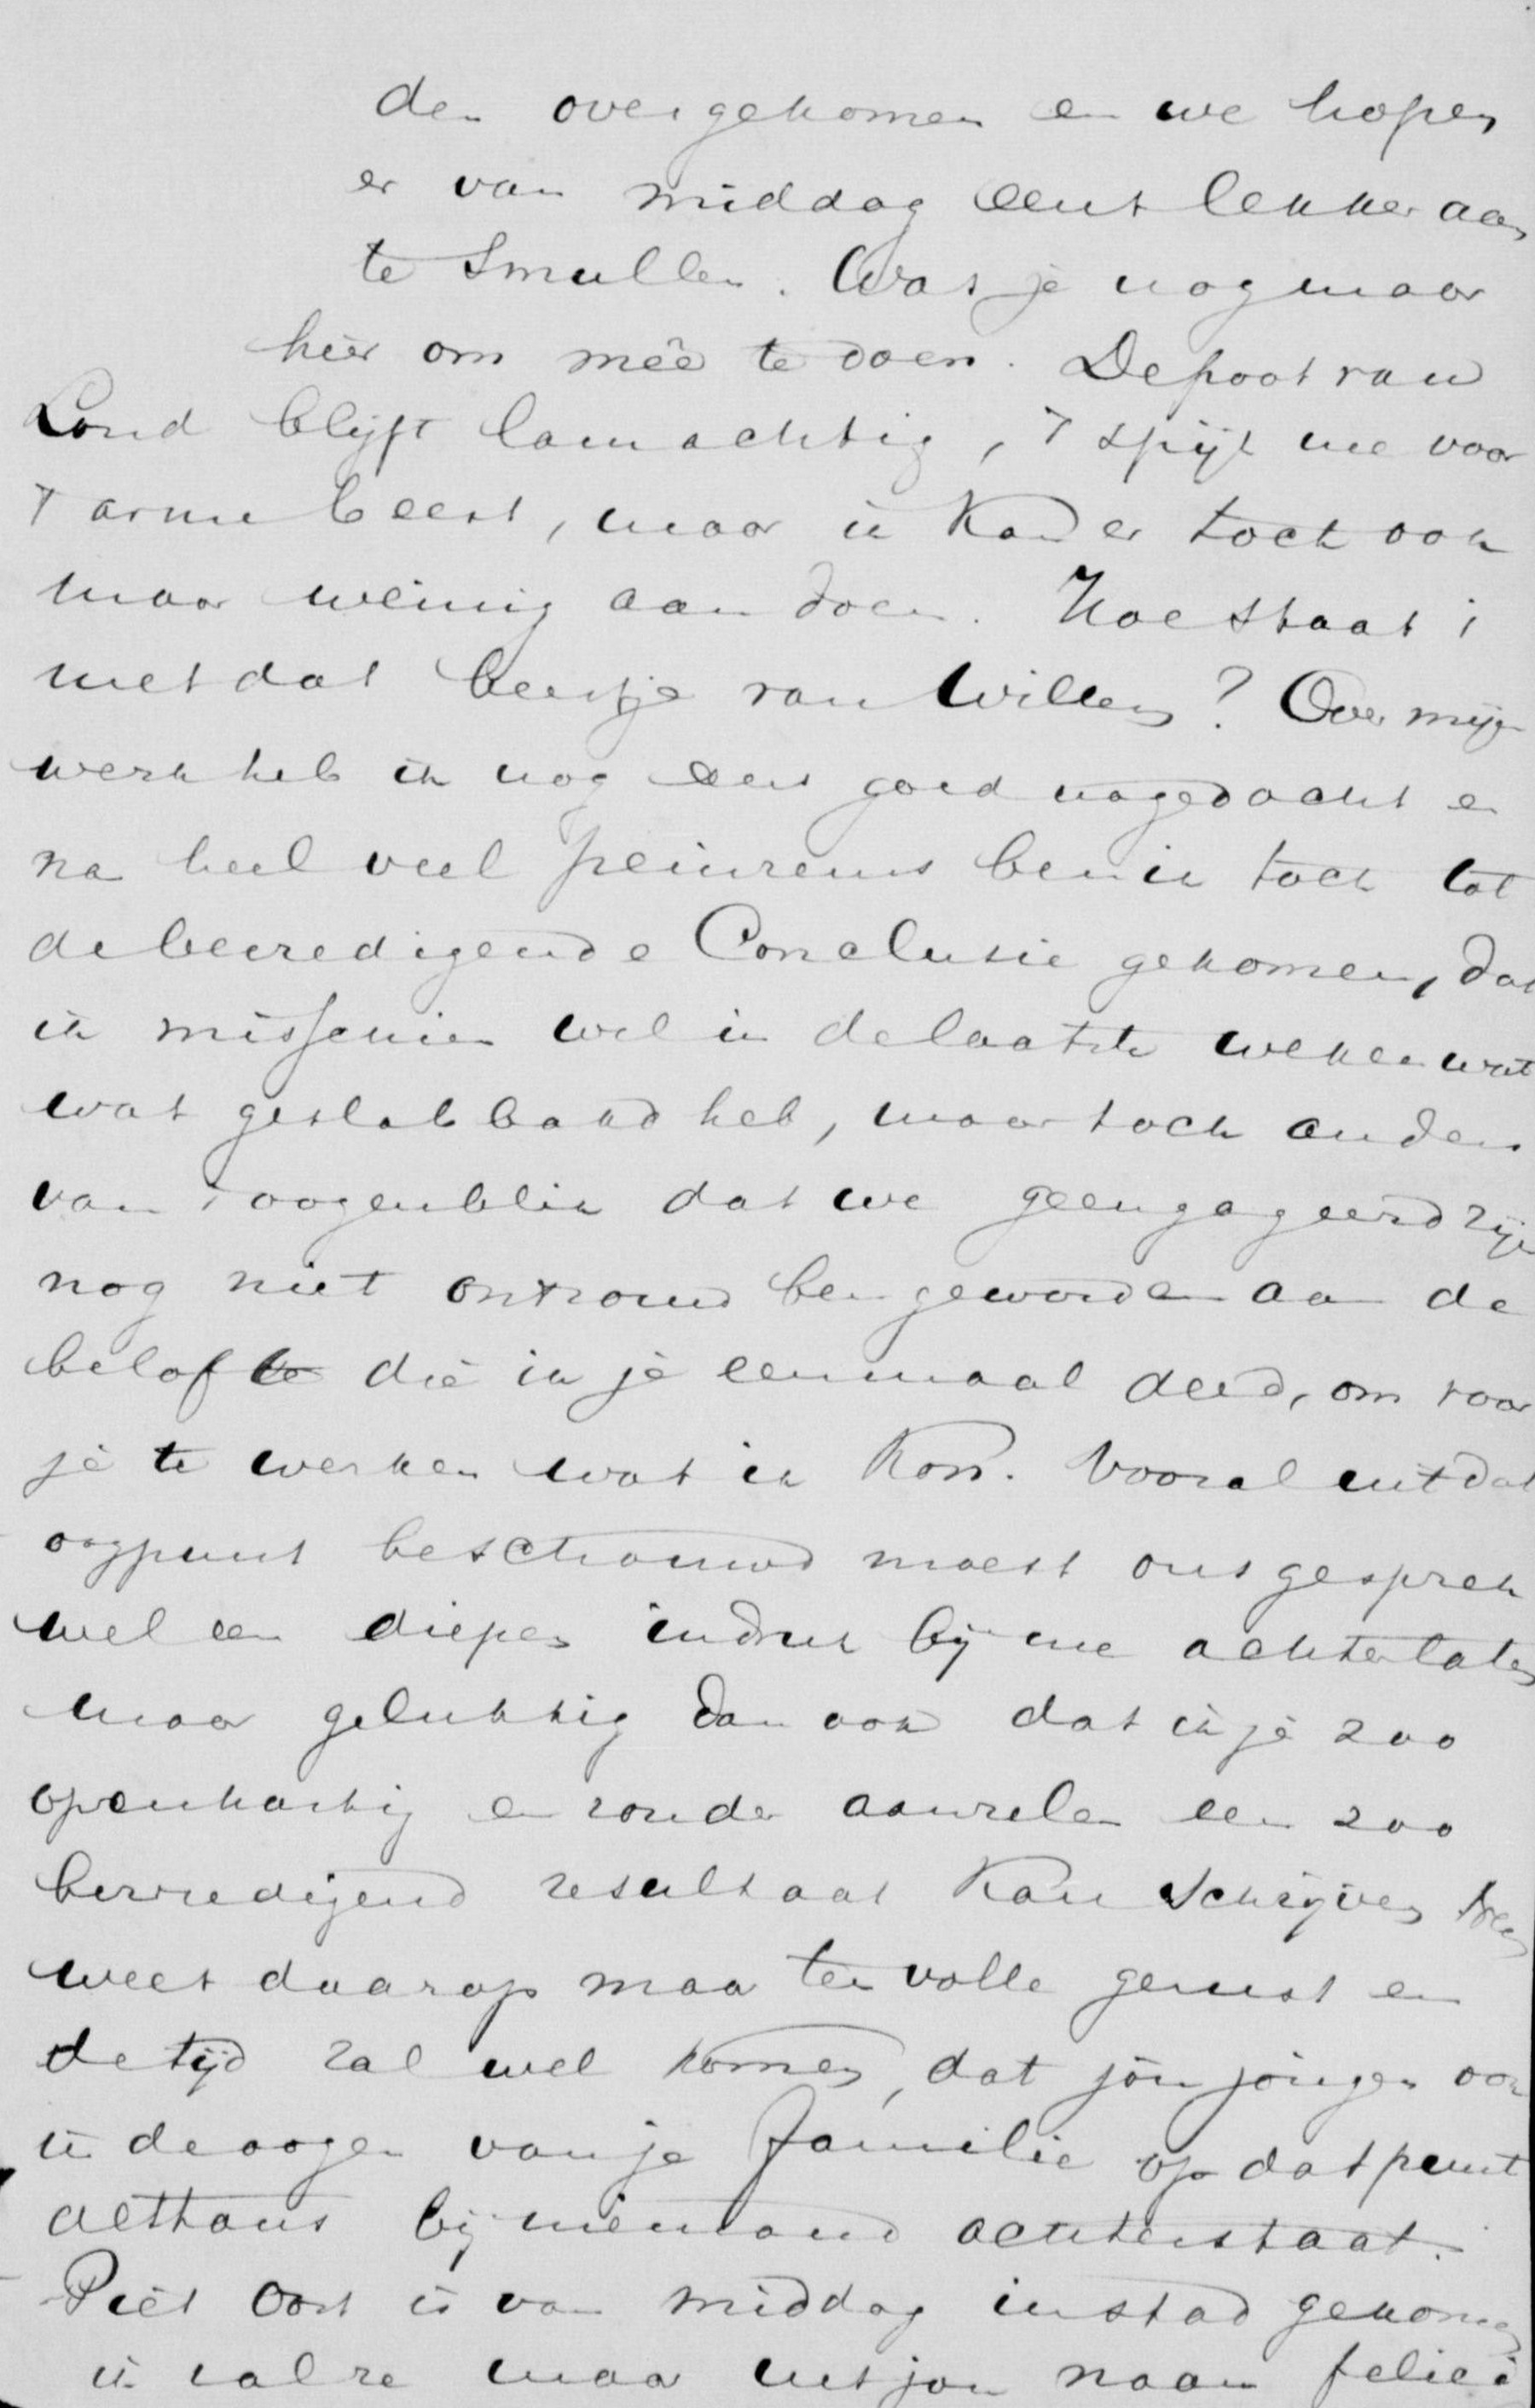 den overgekomen en we hopen
er van middag eens lekker aan
te smullen. Was je nog maar
hier om meê te doen. De poot van
Lord blijft lamachtig, 't spijt me voor
't arme beest, maar ik kan er toch ook
maar weinig aan doen. Hoe staat 't
met dat beestje van Willem? Over mijn
werk heb ik nog eens goed nagedacht en
na heel veel peinzens ben ik toch tot
de bevredigende Conclusie gekomen, dat
ik misschien wel in de laatste weken wat
wat geslabbakd heb, maar toch anders
van 't oogenblik dat we geengageerd zijn
nog niet ontrouw ben geworden aan de
belofte die ik je eenmaal deed, om voor
je te werken wat ik kon. Vooral uit dat
oogpunt beschouwd moest ons gesprek
wel een diepen indruk bij me achterlaten
maar gelukkig dan ook dat ik je zoo
openhartig en zonder aarzelen een zoo
bevredigend resultaat kan schrijven
wees daarop maar ten volle gerust en
de tijd zal wel komen, dat jou jongen ook
in de oogen van je familie op dat punt
althans bij niemand achterstaat.
Piet Oort is van middag in stad gekomen
ik zal ze maar uit jou naam felici